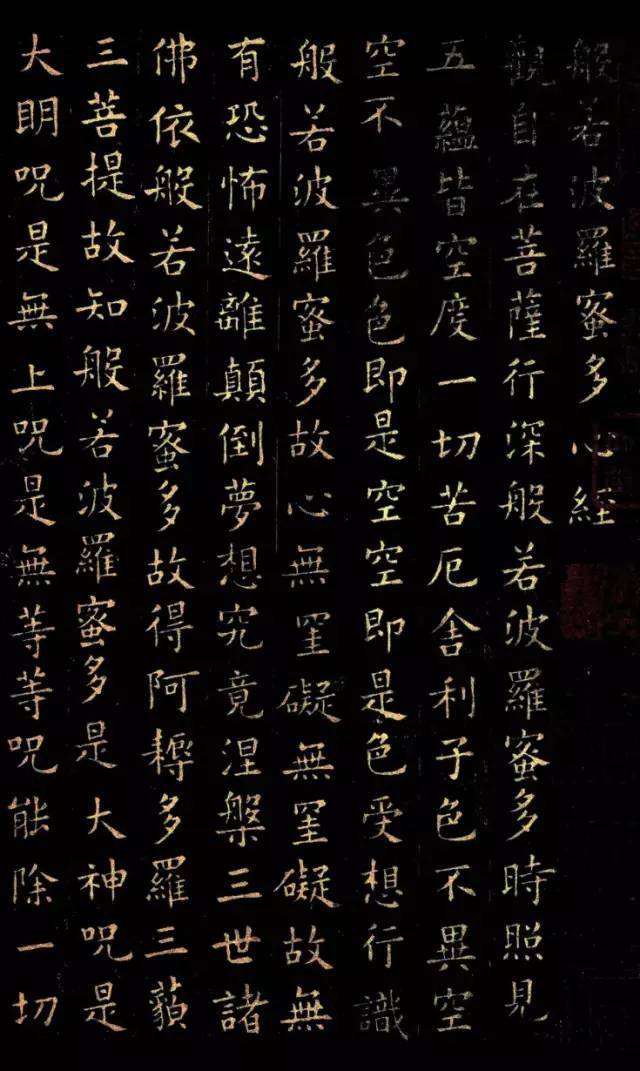 般若波羅蜜多心経
觀自在菩薩行深般若波羅蜜多時照見
五蘊皆空度一切苦厄舍利子色不異空
空不異色色即是空空即是色受想行識
般若波羅蜜多故心無罣礙無罣礙故無
有恐怖遠離顛倒夢想究竟涅槃三世諸
佛依般若波羅蜜多故得阿耨多羅三藐
三菩提故知般若波羅蜜多是大神呪是
大明呪是無上呪是無等等呪能除一切